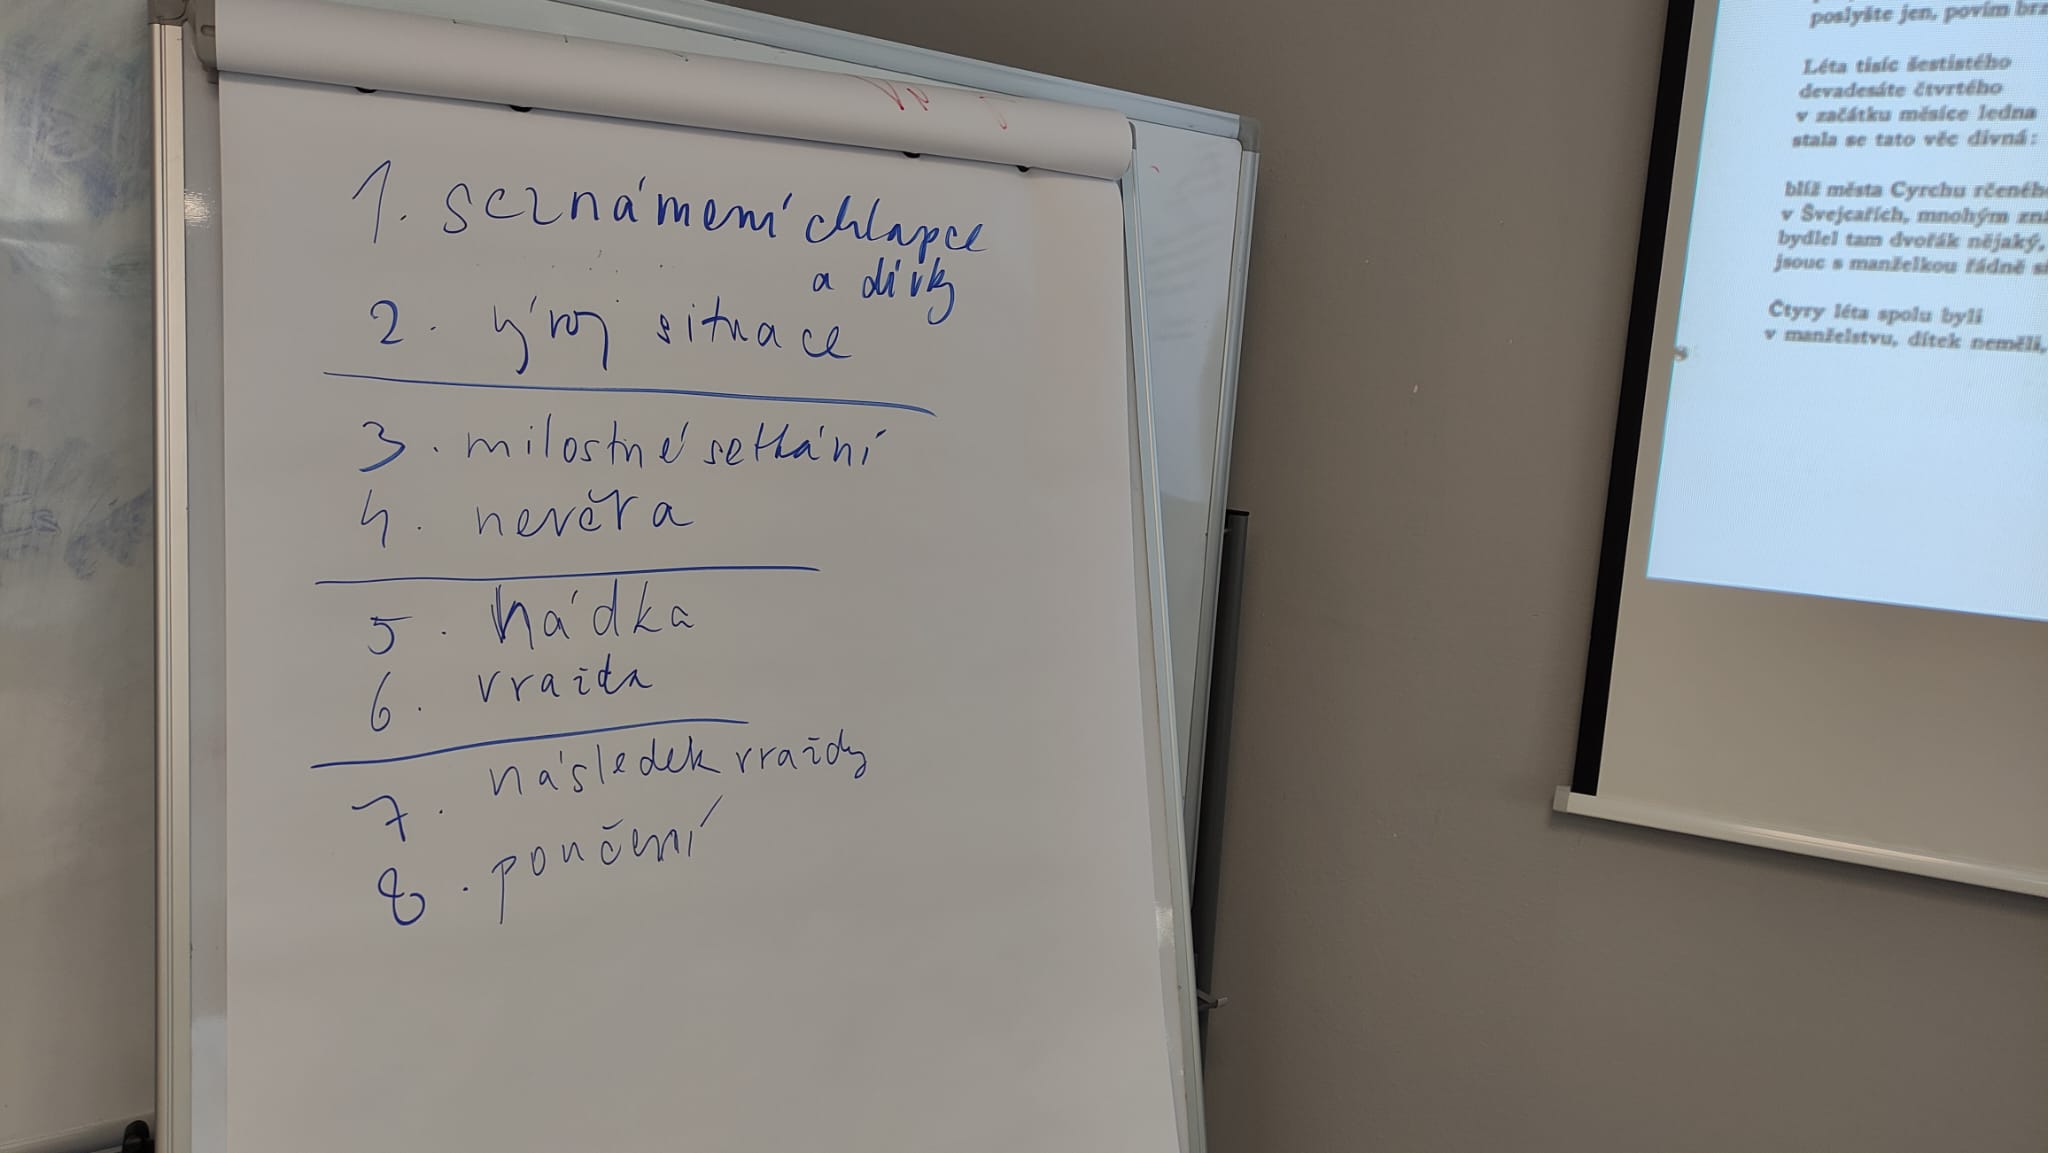 1. seznámení chlapce
a dívky
2. vývoj situace
3. milostné setkání
4. nevěra
5. hádka
6. vražda
7. následek vraždy
8. poučení
poslyšte jen, povím brz
Léta tisíc šestistého
devadesáte čtvrtého
v začátku měsíce ledna
stala se tato věc divná:
blíž města Cyrchu rčenéh
v Švejcařích, mnohým zn
bydlel tam dvořák nějaký,
jsouc s manželkou řádně s
Čtyry léta spolu byli
v manželstvu, dítek neměli,